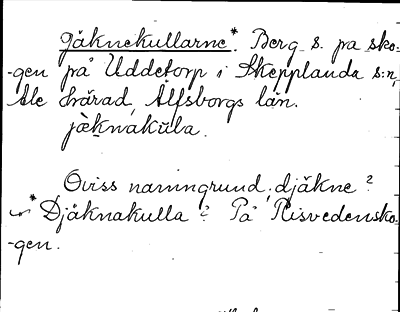 Gäknekullarne*. Berg s. på sko-
-gen på Uddetorp i Skepplanda s:n,
Ale härad, Älfsborgs län.
jæknakula.
Oviss namngrund, djäkne?
*Djäknakulla? På Risvedensko-
-gen.